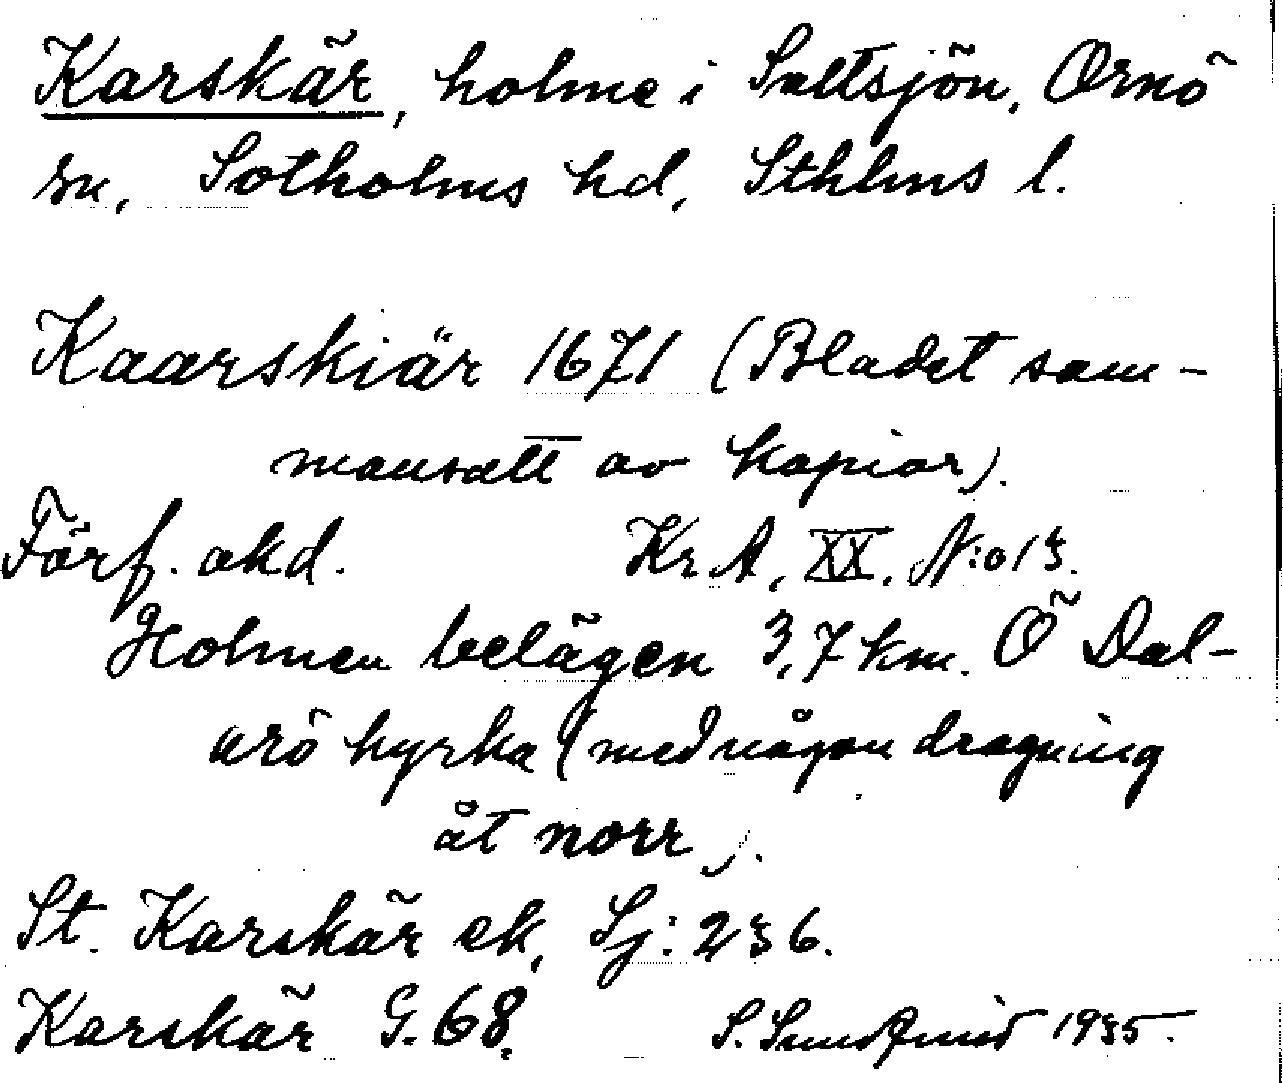 Karskär, holme i Saltsjön, Ornö
sn, Sotholms hd, Sthlms l.
Kaarskiär 1671 (Bladet sam-
mansatt av kopior).
Förf. okd. Kr A, XX, N:o 13.
Holmen belägen 3,7 km. Ö Dal-
arö kyrka (med någon dragning
åt norr).
St. Karskär ek, Sj: 236.
Karskär G. 68.
S. Sundqvist 1935.